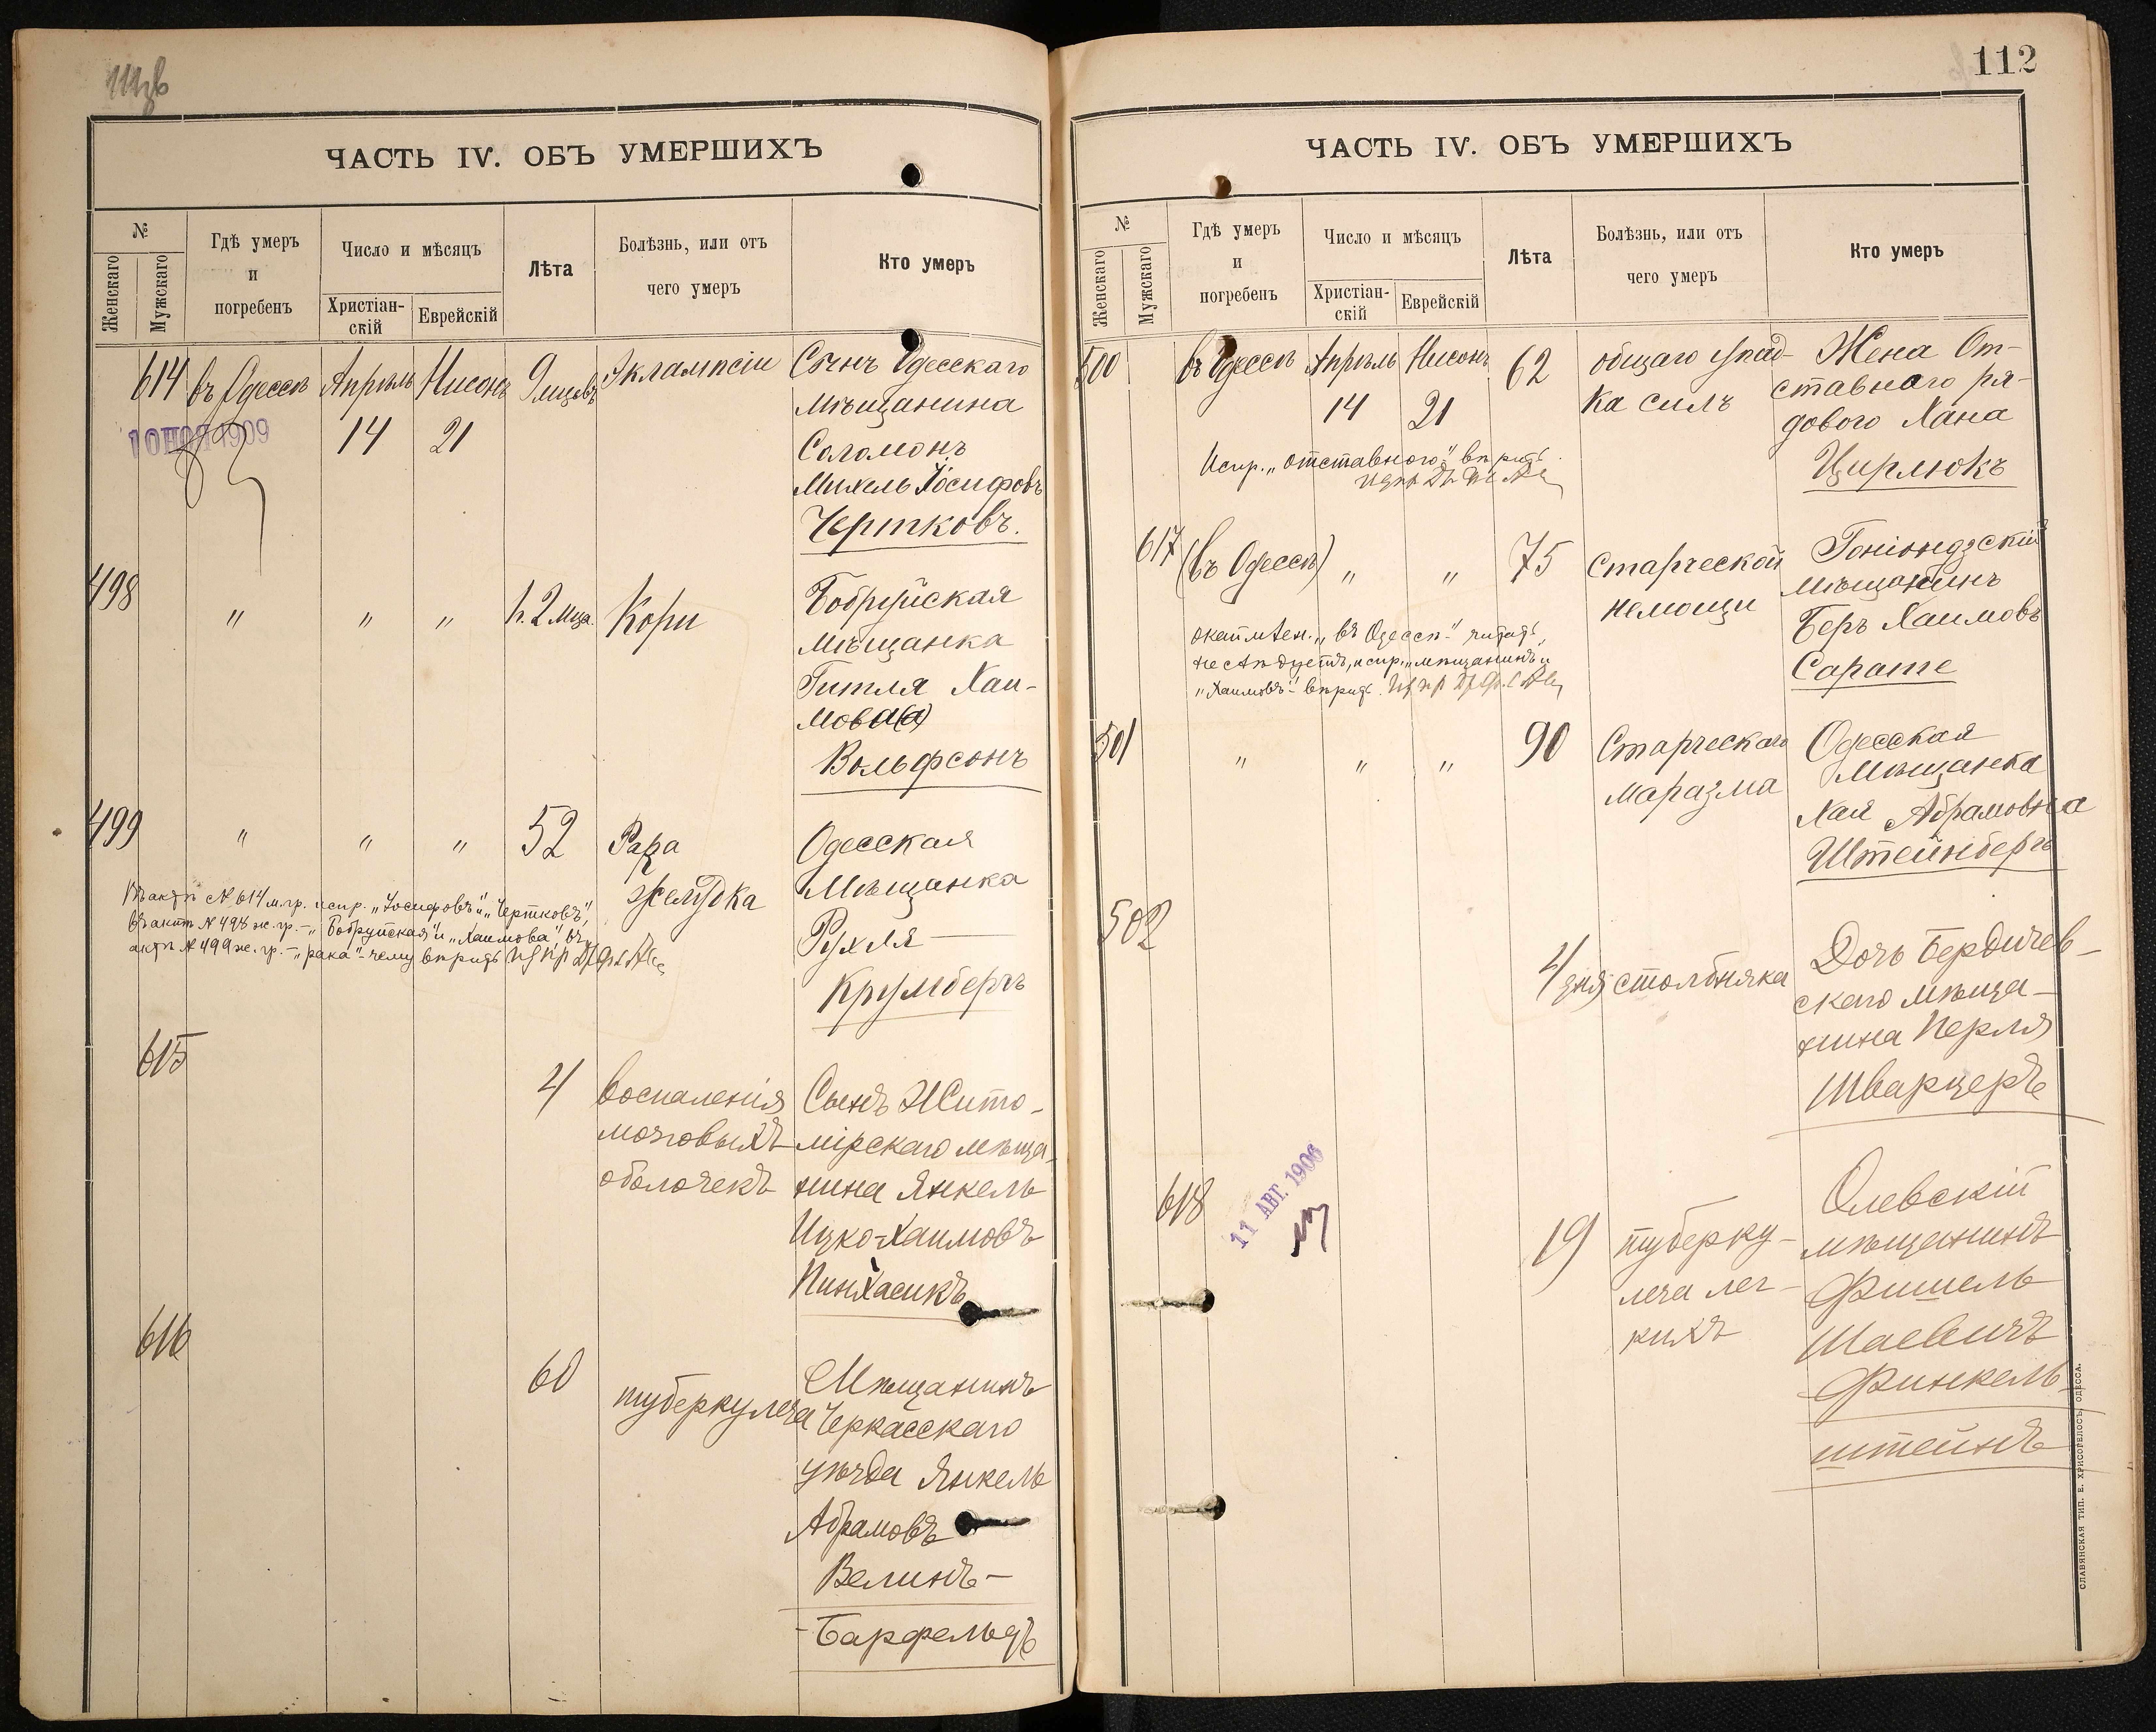 ЧАСТЬ IV. ОБЪ УМЕРШИХЪ
№
Женскаго
Мужскаго
Гдѣ умеръ
и
погребенъ
Число и мѣсяцъ
Христіан-
скій
Еврейскій
Лѣта
Болѣзнь, или отъ
чего умеръ
Кто умеръ
614 въ Одессѣ Апрѣль Нисонъ 9 мцевъ Эклампсіи Сынъ Одесскаго
мѣщанина
10 НОЯ 1909
14 21
Соломонъ
Михель Іосифовъ
Чертковъ.
498 " " " 1 г. 2 мца. Кори Бобруйская
мѣщанка
Гитля Хаи-
мова(а)
Вольфсонъ
499 " " " 52 Рара Одесская
желудка Мѣщанка
Рухля
Крумбергъ
Въ актѣ № 614 м. гр. испр. „Іосифовъ" и „Чертковъ",
въ актѣ № 498 ж. гр. – „Бобруйская" и „Хаимова", въ
актѣ № 499 ж. гр. – „рака" - чему вѣрить
615 4 воспаленія Сынъ Жито-
мозговыхъ мірскаго мѣща-
оболочекъ нина Янкель
Ицко-Хаимовъ
Пинхасикъ
616 60 туберкулеза Мѣщанинъ
Черкасскаго
уѣзда Янкель
Абрамовъ
Велинъ-
-Барфельдъ
112
ЧАСТЬ IV. ОБЪ УМЕРШИХЪ
№
Женскаго
Мужскаго
Гдѣ умеръ
и
погребенъ
Число и мѣсяцъ
Христіан-
скій
Еврейскій
Лѣта
Болѣзнь, или отъ
чего умеръ
Кто умеръ
500 въ Одессѣ Апрѣль Нисонъ 62 общаго упад- Жена От-
14 21 ка силъ ставнаго ря-
дового Хана
Цирлюкъ
Испр. „отставного" вѣрить.
617 (въ Одессѣ) " " 75 Старческой Гоніондзскій
немощи мѣщанинъ
Беръ Хаимовъ
Сарате
„въ Одессѣ" читать
не слѣдуетъ, испр. „мѣщанинъ" и
„Хаимовъ" вѣрить.
501 " " " 90 Старческаго Одесская
маразма Мѣщанка
Хая Абрамовна
Штейнбергъ
502 4 дня столбняка Дочь Бердичев-
скаго мѣща-
нина Перля
Шварцеръ
618 11 АВГ. 1906 19 туберку- Олевскій
леза лег- мѣщанинъ
кихъ Фишель
Шаевичъ
Финкель-
штейнъ
СЛАВЯНСКАЯ ТИП. Е. ХРИСОГЕЛОСЪ, ОДЕССА.